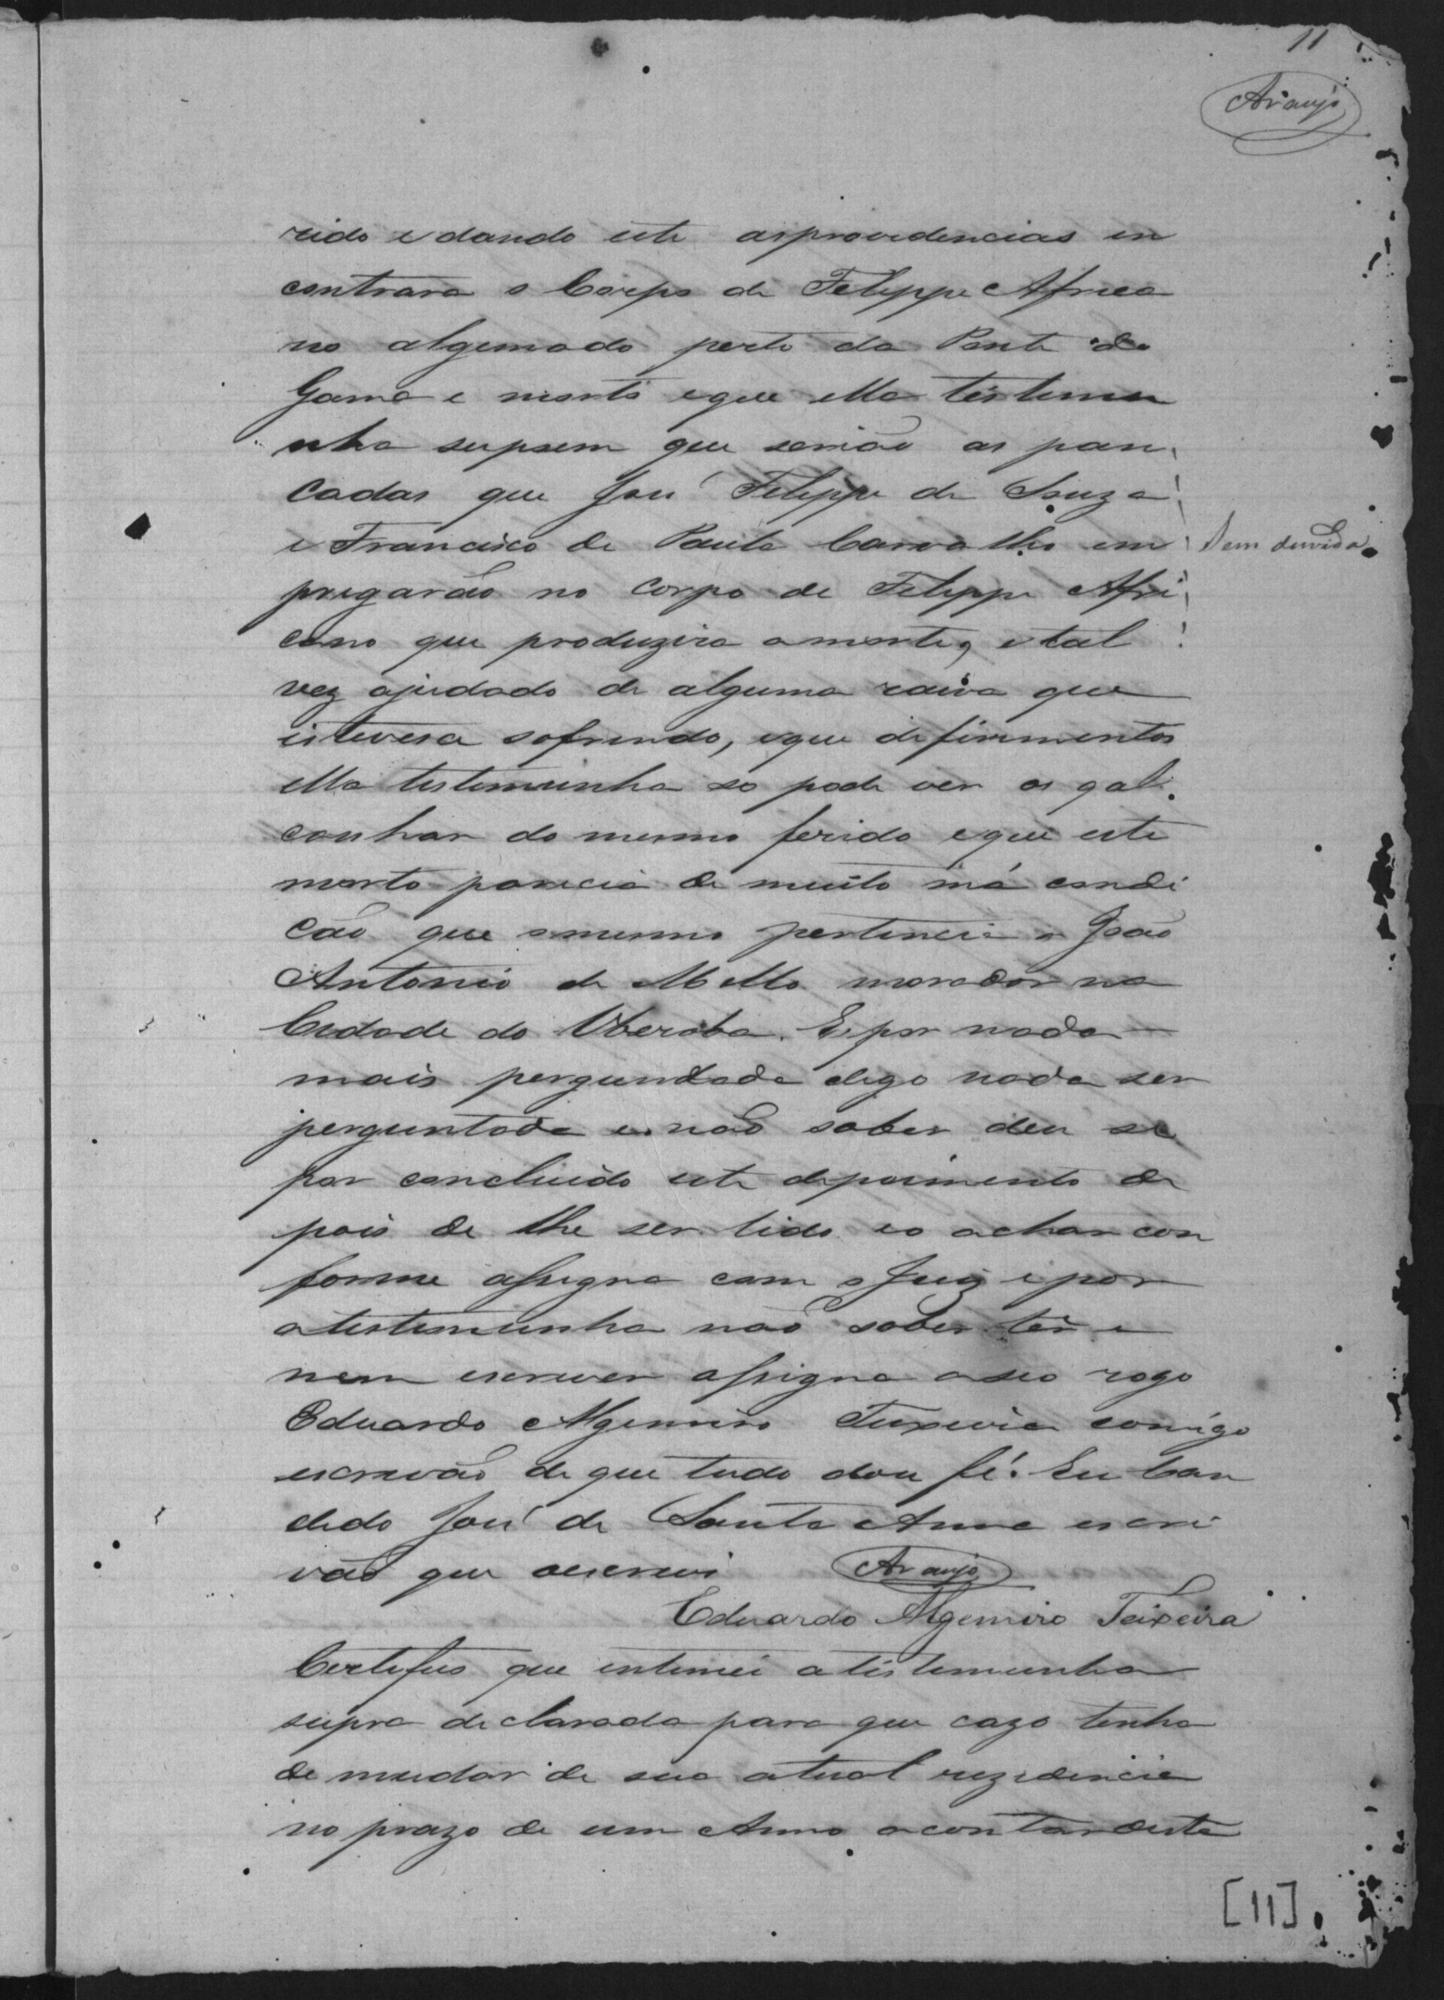 11
Araujo
rido e dando este asprovidencias en
contrara o Corpo de Felippe Africa
no algemado perto da Ponte do
Gama e morto eque ella testemu
nha supoem que serião as pan
cadas que José Felippe de Souza
e Francisco de Paula Carvalho em
Sem duvida
pregarão no corpo de Felippe Afri
cano que produzira amorte, etal
vez ajudado de alguma raiva que
estivera sofrendo, eque de firimentos
ella testemunha so pode ver os gal
canhar do mesmo ferido eque este
morto parecia de muito má condi
cão que omesmo pertencia a João
Antonio de Mello morador na
Cidade do Uberaba. E por nada
mais pergundada digo nada ser
perguntada e não saber deu se
por concluido este depoimento de
pois de lhe ser lido eo achar con
forme assigna com o Juiz epor
atestemunha não saber ler e
nem escrever assigna aseo rogo
Eduardo Algemiro Teixeira comigo
escrivão de que tudo dou fé. Eu Can
dido José de Santa Anna escri
vão que oescrevi Araujo
Eduardo Algemiro Teixeira
Certifico que intimei atestemunha
supra declarada para que cazo tenha
de mudar de sua atual rezidencia
no prazo de um Anno acontardesta
[11]